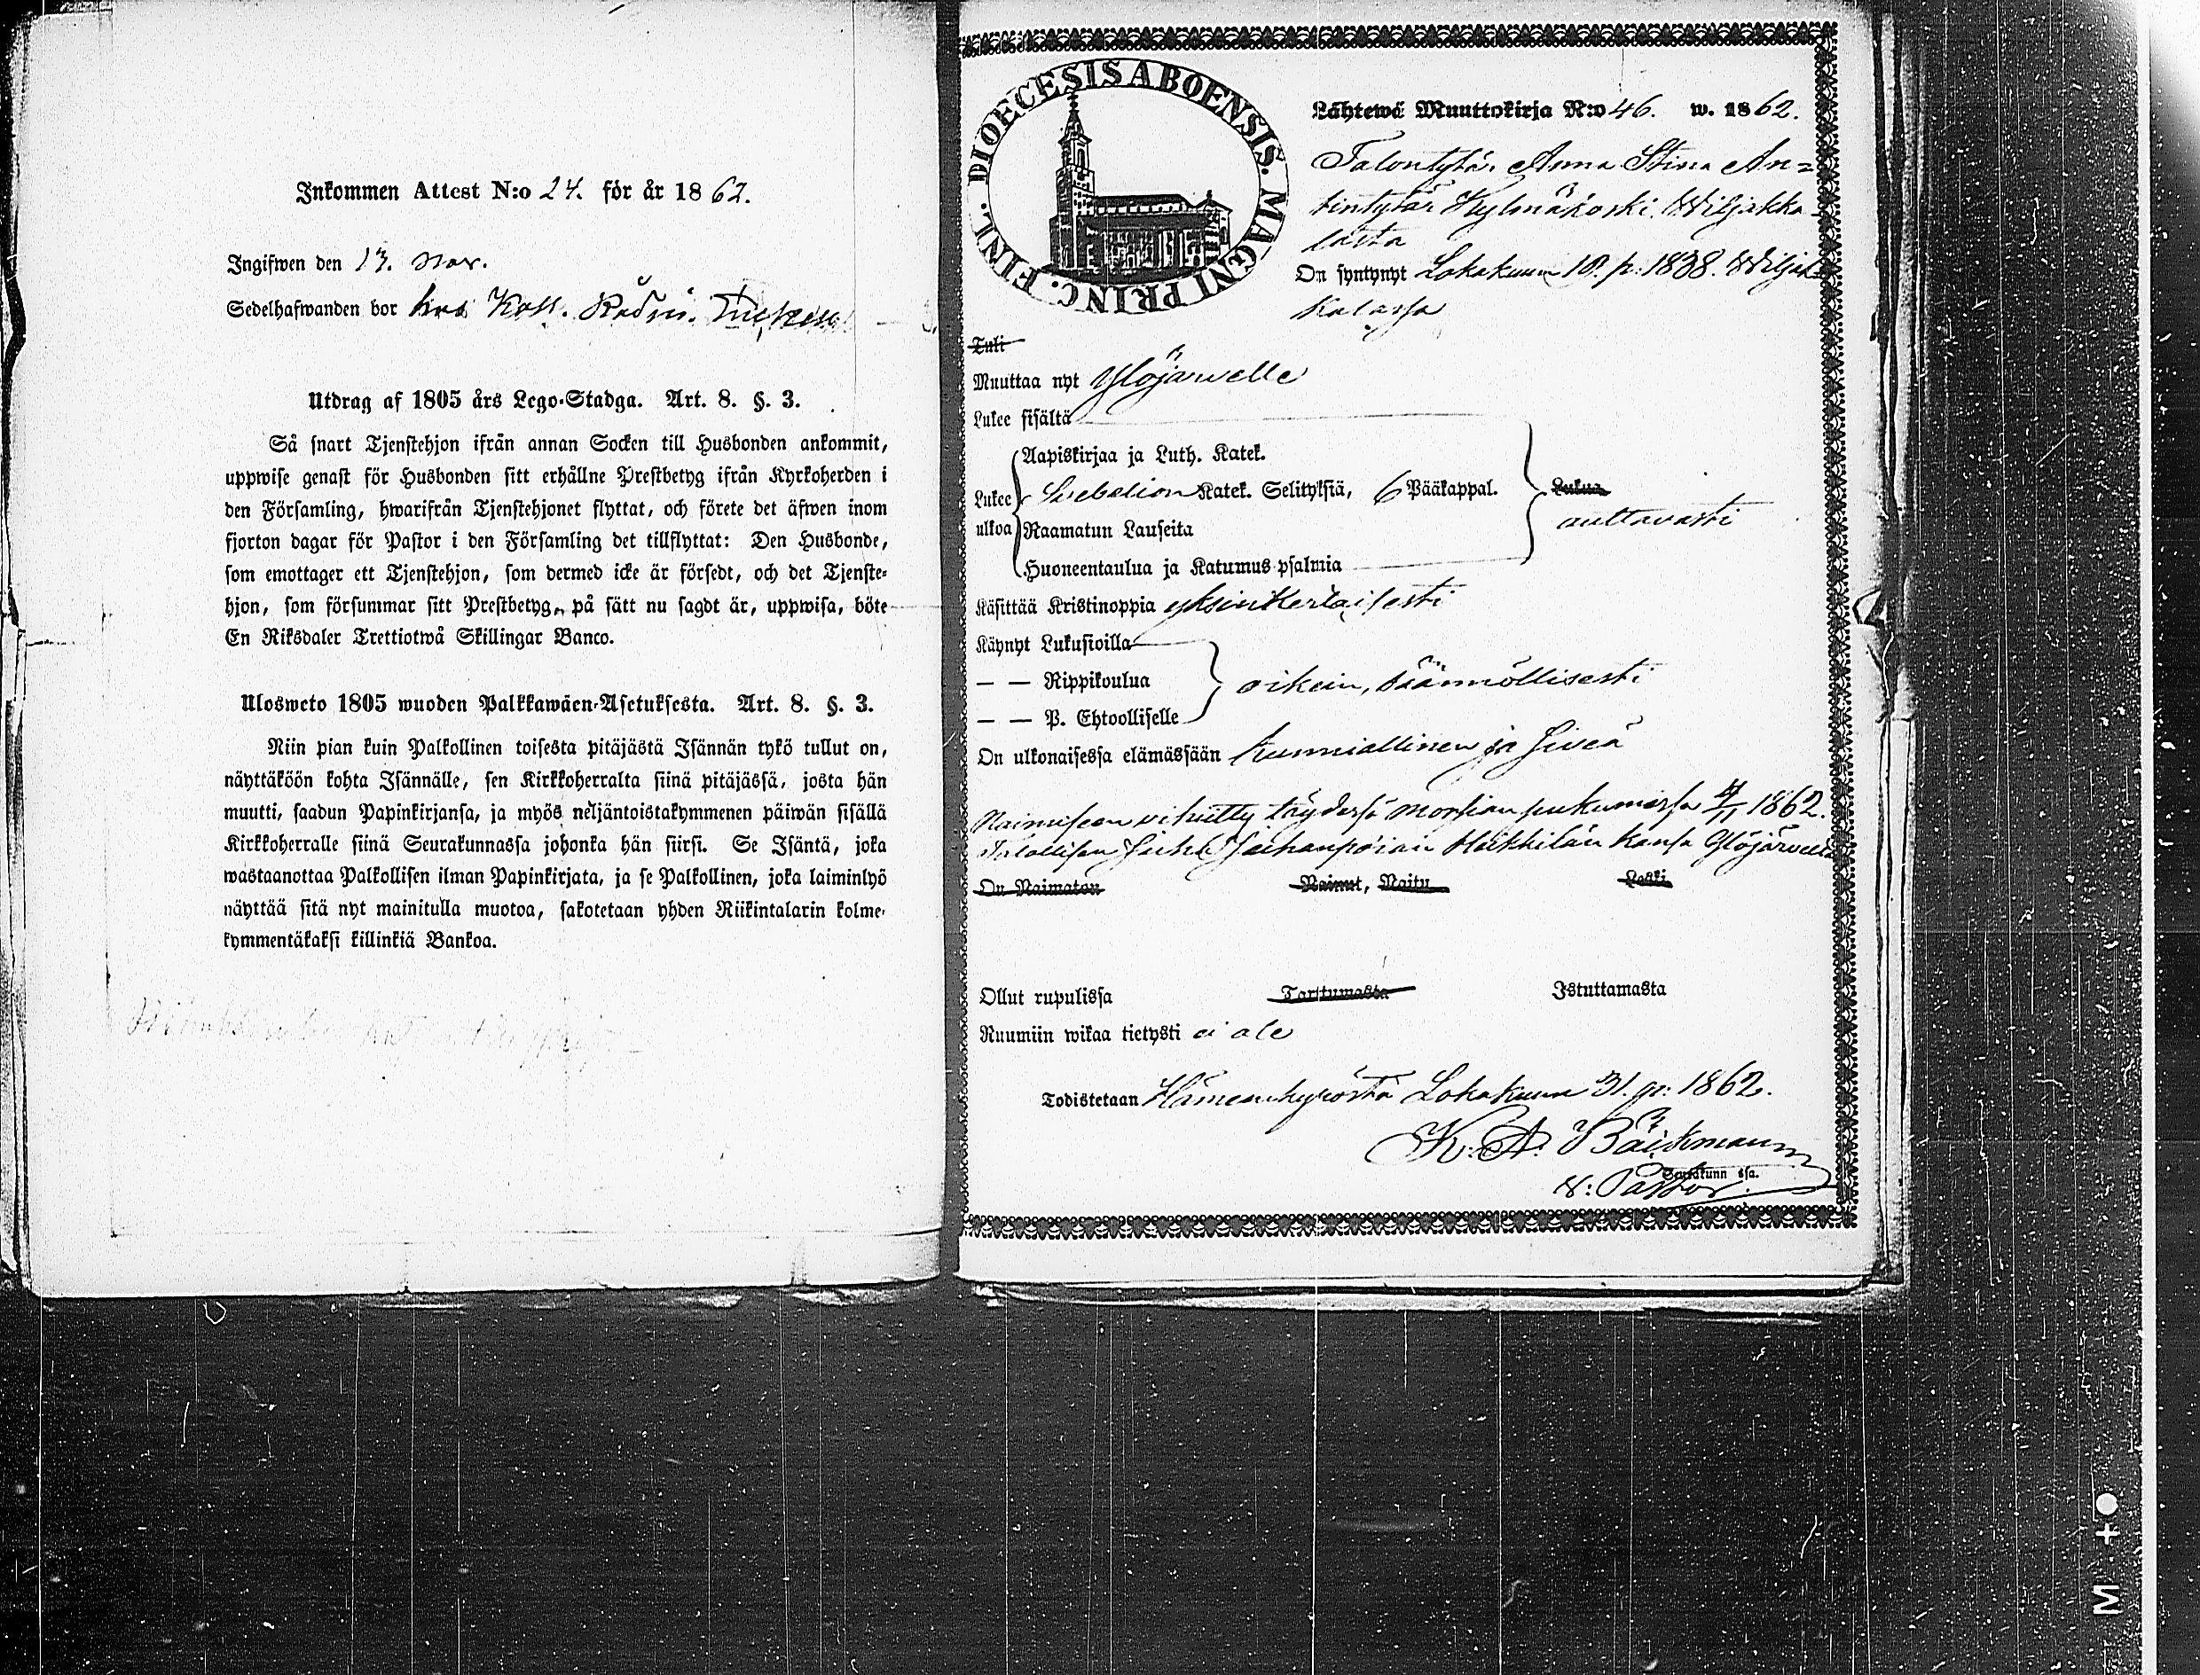 Inkommen Attest N:o 24. för år 1862.
Ingifwen den 13. Nov.
Sedelhafwanden bor hos Koll. Rådin.
Utdrag af 1805 års Lego-Stadga. Art. 8. §. 3.
Så snart Tjenstehjon ifrån annan Socken till Husbonden ankommit,
uppwise genast för Husbonden sitt erhållne Prestbetyg ifrån Kyrkoherden i
den Församling, hwarifrån Tjenstehjonet flyttat, och förete det äfwen inom
fjorton dagar för Pastor i den Församling det tillflyttat: Den Husbonde,
som emottager ett Tjenstehjon, som dermed icke är försedt, och det Tjenste-
hjon, som försummar sitt Prestbetyg, på sätt nu sagdt är, uppwisa, böte
En Riksdaler Trettiotwå Skillingar Banco.
Ulosweto 1805 wuoden Palkkawäen-Asetuksesta. Art. 8. §. 3.
Niin pian kuin Palkollinen toisesta pitäjästä Isännän tykö tullut on,
näyttäköön kohta Isännälle, sen Kirkkoherralta siinä pitäjässä, josta hän
muutti, saadun Papinkirjansa, ja myös neljäntoistakymmenen päiwän sisällä
Kirkkoherralle siinä Seurakunnassa johonka hän siirsi. Se Isäntä, joka
wastaanottaa Palkollisen ilman Papinkirjata, ja se Palkollinen, joka laiminlyö
näyttää sitä nyt mainitulla muotoa, sakotetaan yhden Riikintalarin kolme-
kymmentäkaksi killinkiä Bankoa.
DIOECESIS ABOENSIS. MAGNI PRINC. FINL.
Lähtewä Muuttokirja N:o 46. w. 1862.
Talontytär Anna Stina An=
tintytär Kylmäkoski Wiljakka
lasta
On syntynyt Lokakuun 10. p. 1838. Wiljak
kalassa
Tuli
Muuttaa nyt Ylöjärvelle
Lukee sisältä
Aapiskirjaa ja Luth. Katek.
Lukee ulkoa Svebelion Katek. Selityksiä, 6 Pääkappal.
Raamatun Lauseita
Huoneentaulua ja Katumus psalmia
Lukua
auttavasti
Käsittää Kristinoppia yksinkertaisesti
Käynyt Lukusioilla
— — Rippikoulua
— — P. Ehtoolliselle
oikein, säännöllisesti
On ulkonaisessa elämässään kunniallinen ja siveä
Naimiseen vihitty täydessä morsian pukumessa 1862.
Talollisen Heikkilän kansa Ylöjärveltä
On Naimaton Nainut, Naitu Leski
Ollut rupulissa Tarttumasta Istuttamasta
Ruumiin wikaa tietysti ei ole
Todistetaan Hämeenkyröstä Lokakuun 31. p: 1862.
K. A. Bäckman
Seurakunn ssa.
v: Pastor.
M